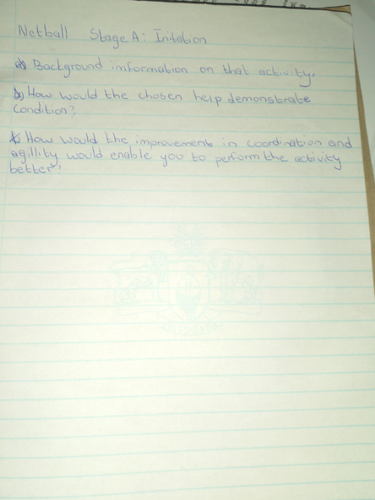 Netball Stage A: Initation
a) Background information on that activity.
b) How would the chosen help demonstrate
Condition?
c) How would the improvements in coordination and
agillity would enable you to perform the activity
better?